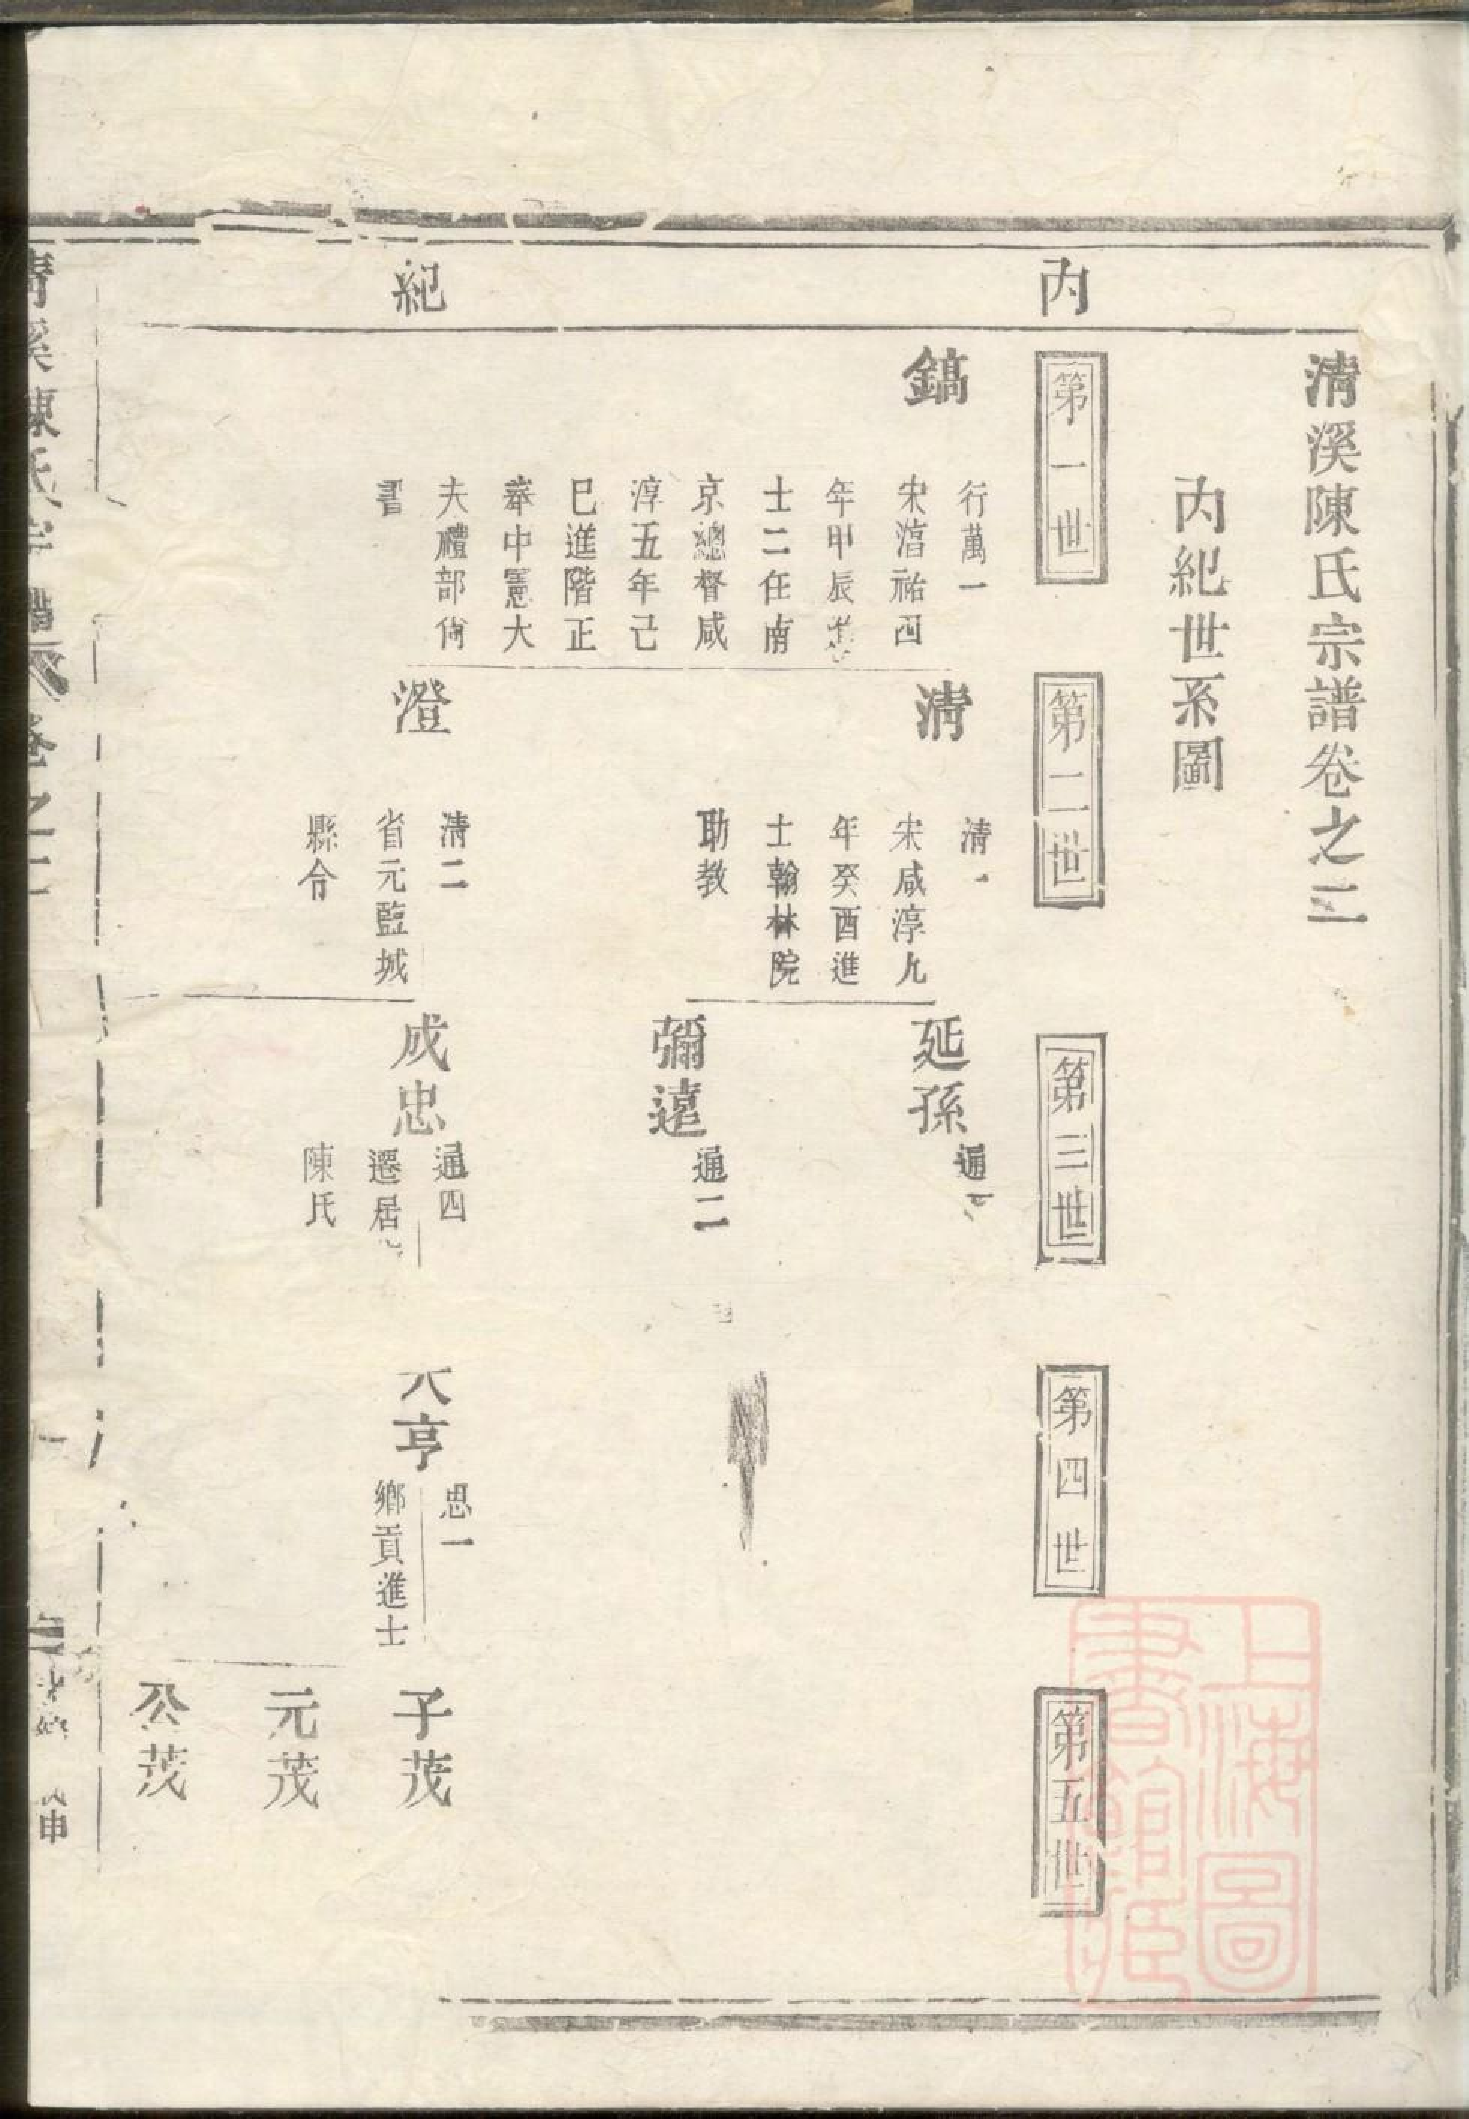 清溪陳氏宗譜卷之二
內紀世系圖
內
紀
第一世
第二世
第三世
第四世
第五世
鎬
行萬一
宋淳祐四
年甲辰進
士二任南
京總督咸
淳五年己
巳進階正
奉中憲大
夫禮部尚
書
清
清一
宋咸淳九
年癸酉進
士翰林院
助教
澄
清二
省元監城
縣令
延孫
通
彌遠
通二
成忠
通四
遷居
陳氏
大亨
思一
鄉貢進士
子茂
元茂
公茂
清溪陳氏宗譜 卷之二
上海圖書館藏